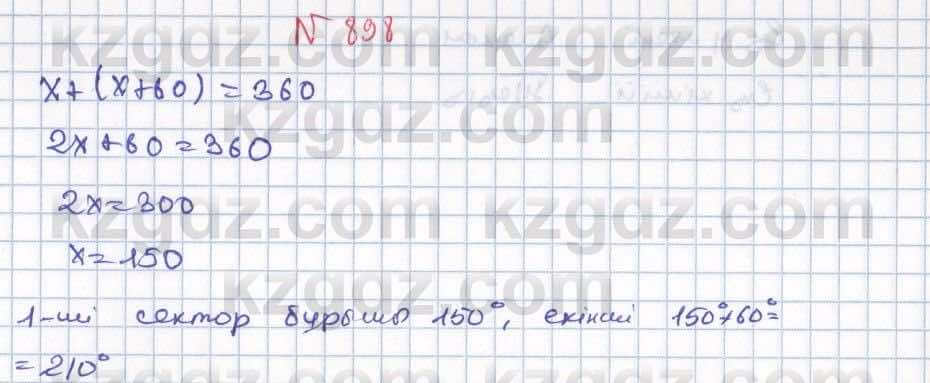 N 898
x+(x+60)=360
2x+60=360
2x=300
x=150
1-ші сектор бұрышы 150°, екінші 150°+60°=
=210°
kzgdz.com kzgdz.com
kzgdz.com
kzgdz.com kzgdz.com
kzgdz.com